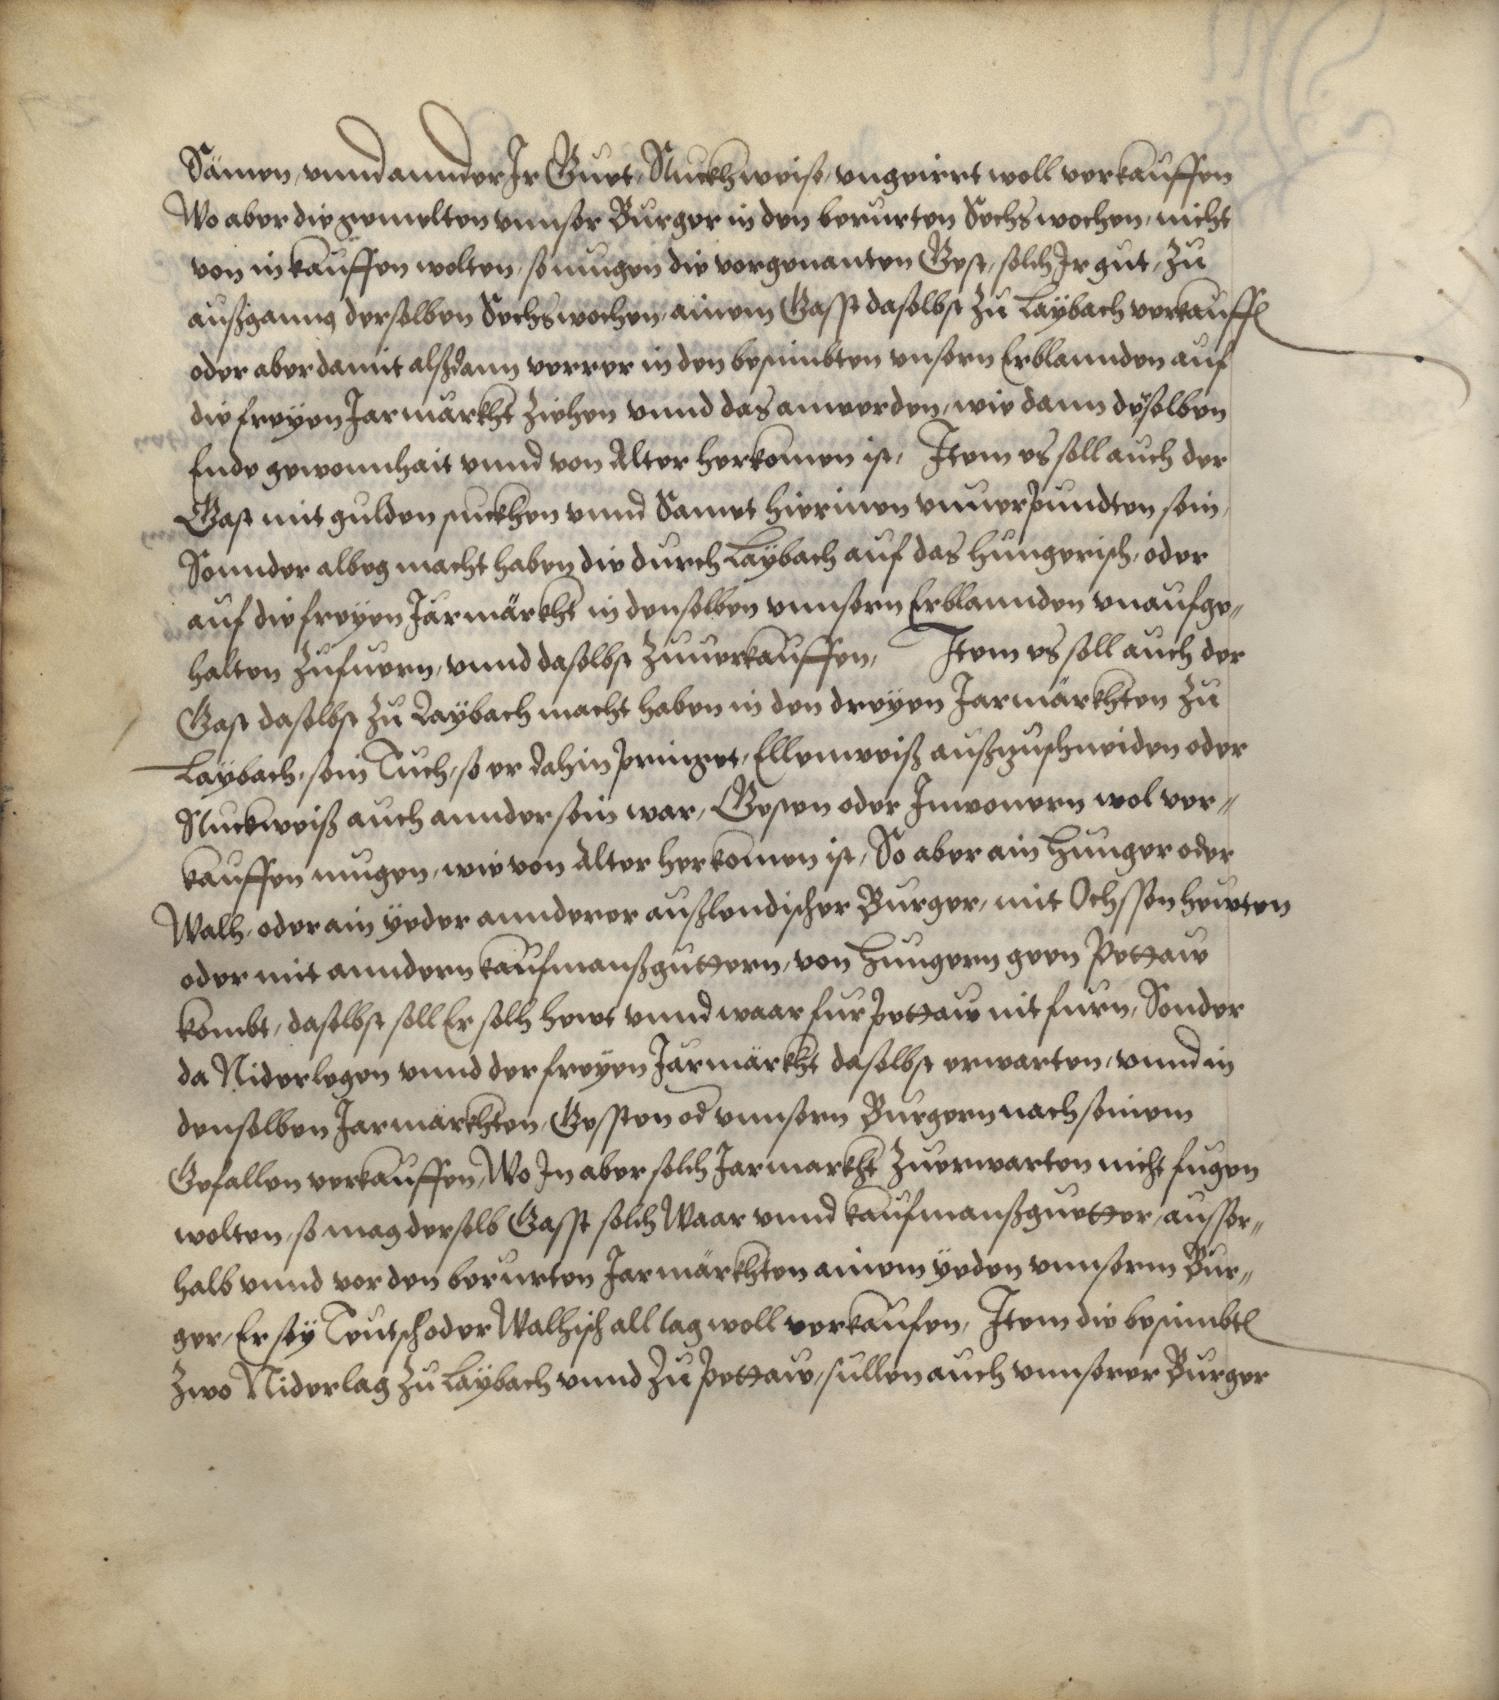 Sämen, vnnd annder Ir Guet, Stuckhweise, vngeirrt woll verkauffen
Wo aber die gemelten vnnser Burger in den berurten Sechs wochen, nicht
von in kauffen wolten, so mugen die vorgenanten Gest, solch Ir gut, Zu
außganng derselben Sechs wochen, ainem Gasst daselbst zu Laybach verkauffen
oder aber damit alßdann verrer in den bestimbten vnsern Erblannden auf
die freyen Jarmärkht Ziehen vnnd das anwerden, wie dann dieselben
Ende gewonnhait vnnd von Alter herkomen ist, Item es soll auch der
Gast mit gulden stuckhen vnnd Samet hierinen vnuerpundten sein,
Sonnder albeg macht haben die durch Laÿbach auf das Hungerisch, oder
auf die freyen Jarmärkht in denselben vnnsern Erblannden vnaufge„
halten Zufuern, vnnd daselbst Zuuerkauffen, Item es soll auch der
Gast daselbst zu Laÿbach macht haben in den dreyen Jarmärkhten Zu
Laÿbach, sein Tuch, so er dahin pringet, Ellenweiß außzuschneiden oder
Stuckweiß auch annder sein war, Gesten oder Inwonern wol ver„
kauffen mugen, wie von Alter herkomen ist, So aber ain Hunger oder
Walh, oder ain yeder annderer außlendischer Burger, mit Ochssen heuten
oder mit anndern kaufmanßguttern, von Hungern geen Pettaw
kombt, daselbst soll Er solh hewt vnnd waar fur Pettaw nit furn, Sonder
da Niderlegen vnnd der freyen Jarmärkht daselbst erwarten, vnnd in
denselben Jarmarkhten, Gessten od vnnsern Burgern nach seinem
Gefallen verkauffen, Wo In aber solch Jarmarkht Zuerwarten nicht fugen
wolten, so mag derselb Gasst solch Waar vnnd kaufmanßguetter, ausser„
halb vnnd vor den berurten Jarmärkhten ainem yeden vnnserm Bur„
ger, Er seÿ Teutsch oder Walhisch all tag woll verkaufen, Item die bestimbten
Zwo Niderlag Zu Laÿbach vnnd Zu Pettaw, sullen auch vnnserer Burger